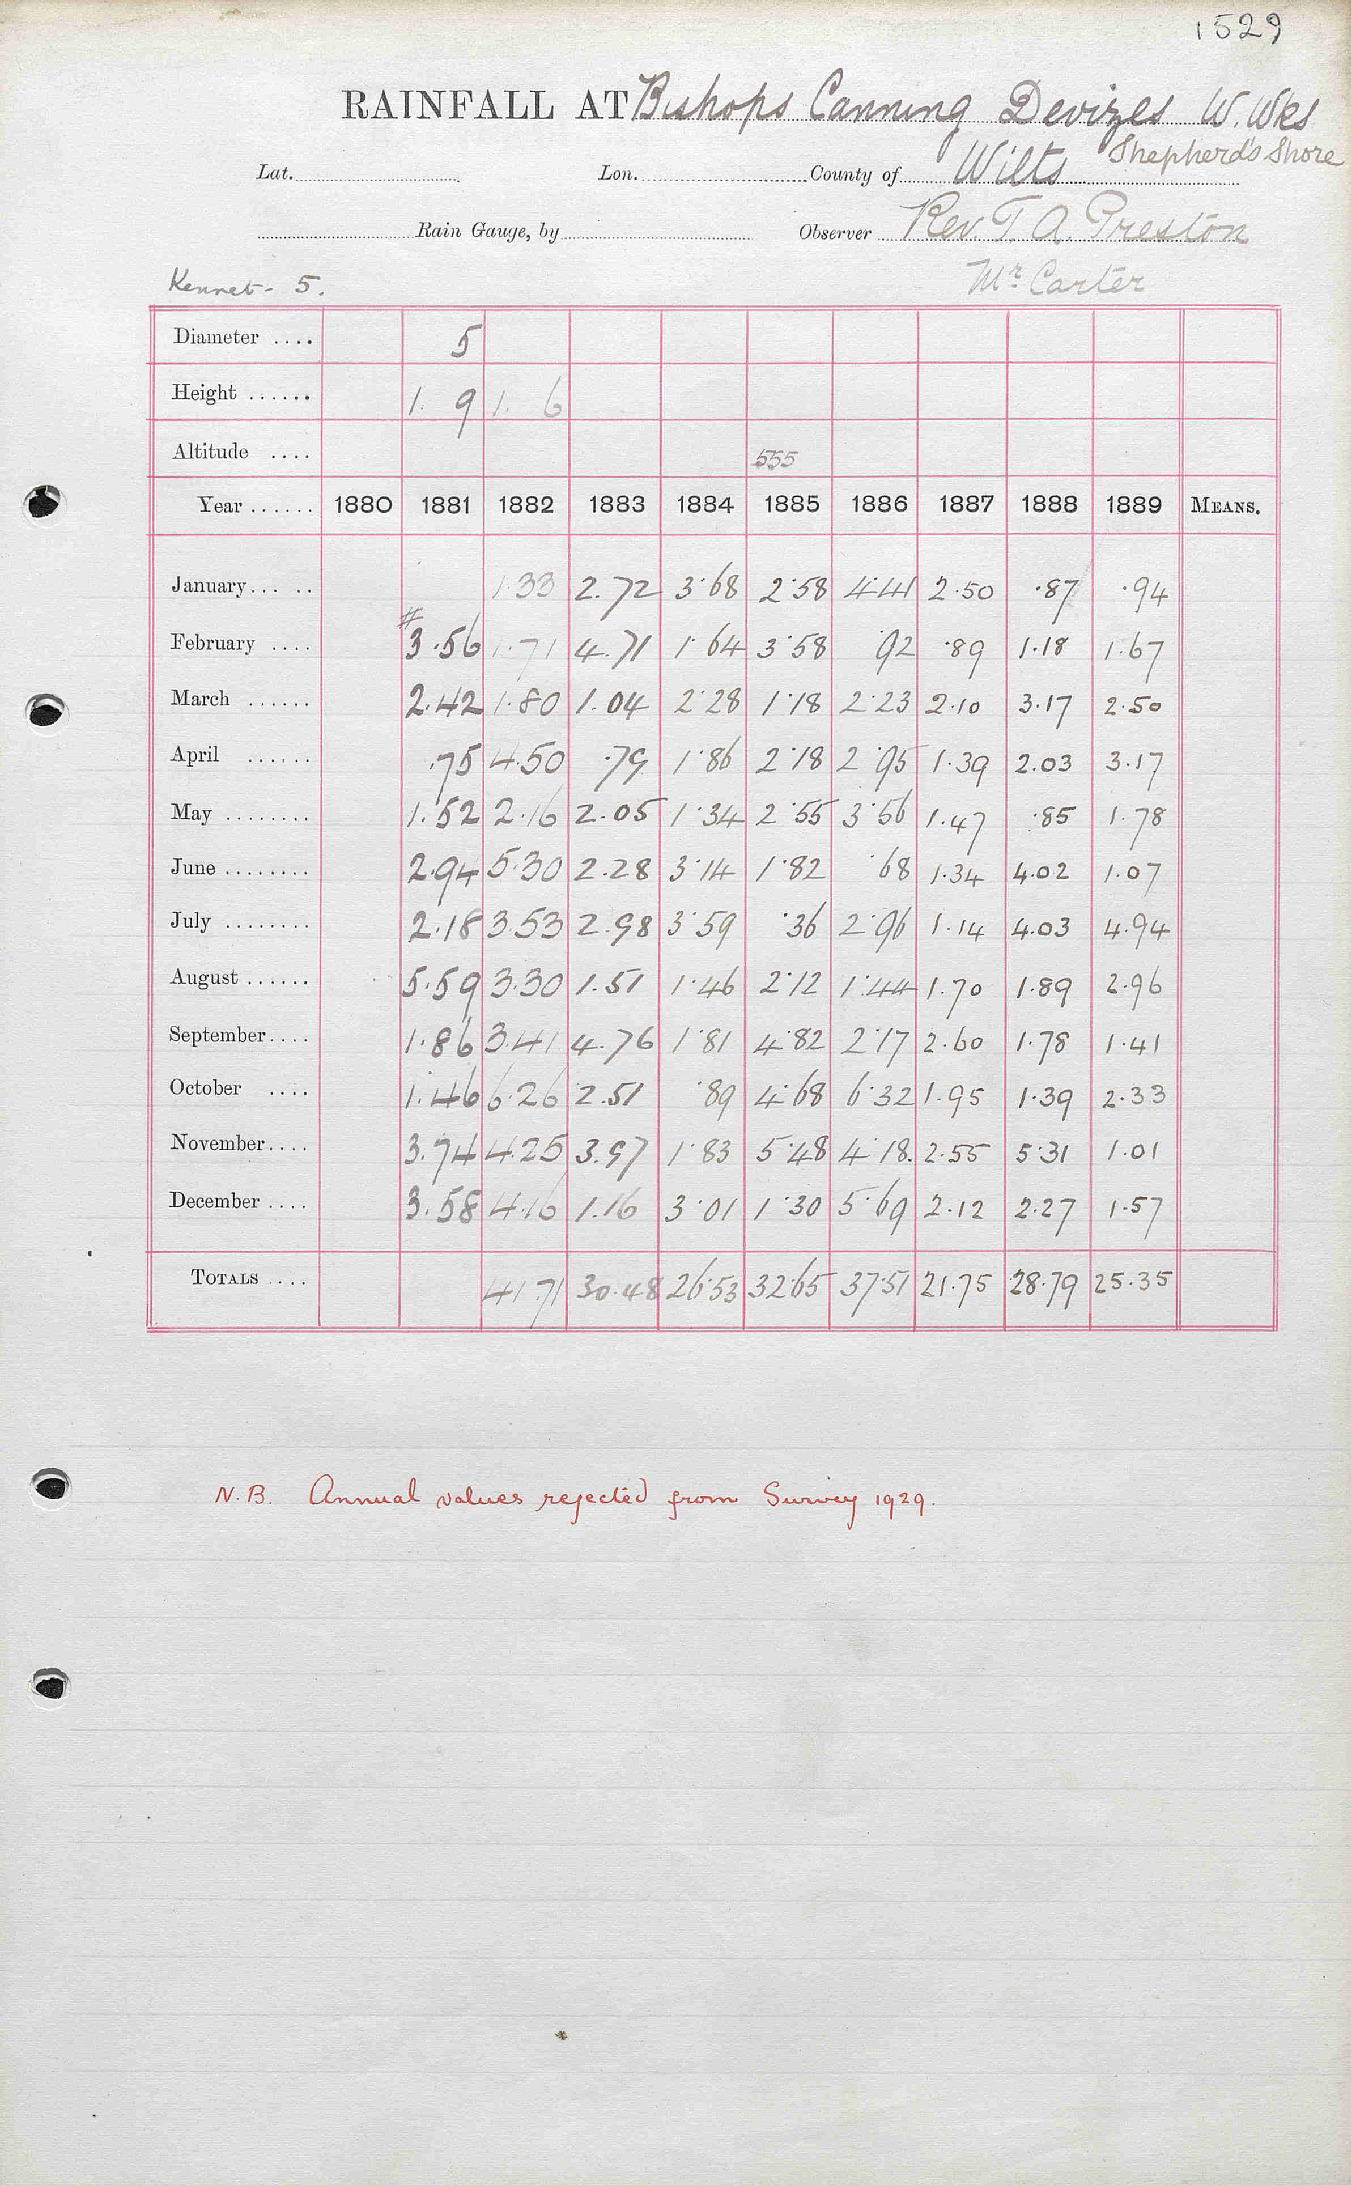 1529
RAINFALL AT Bishops Canning Devizes W. Wks
Shepherd's Shore
Lat. Lon. County of Wilts
Rain Gauge, by Observer Rev. T. A. Preston
Kennet - 5. Mr Carter
Diameter .... 5
Height ...... 1. 9 1. 6
Altitude .... 555
Year ...... 1880 1881 1882 1883 1884 1885 1886 1887 1888 1889 MEANS.
January... .. 1.33 2.72 3.68 2.58 4.41 2.50 .87 .94
#
February .... 3.56 1.71 4.71 1.64 3.58 .92 .89 1.18 1.67
March ...... 2.42 1.80 1.04 2.28 1.18 2.23 2.10 3.17 2.50
April ...... .75 4.50 .79 1.86 2.18 2.95 1.39 2.03 3.17
May ........ 1.52 2.16 2.05 1.34 2.55 3.56 1.47 .85 1.78
June ........ 2.94 5.30 2.28 3.14 1.82 .68 1.34 4.02 1.07
July ........ 2.18 3.53 2.98 3.59 .36 2.96 1.14 4.03 4.94
August ...... 5.59 3.30 1.51 1.46 2.12 1.44 1.70 1.89 2.96
September.... 1.86 3.41 4.76 1.81 4.82 2.17 2.60 1.78 1.41
October .... 1.46 6.26 2.51 .89 4.68 6.32 1.95 1.39 2.33
November.... 3.74 4.25 3.97 1.83 5.48 4.18. 2.55 5.31 1.01
December .... 3.58 4.16 1.16 3.01 1.30 5.69 2.12 2.27 1.57
TOTALS .... 41.71 30.48 26.53 32.65 37.51 21.75 28.79 25.35
N.B. Annual values rejected from Survey 1929.